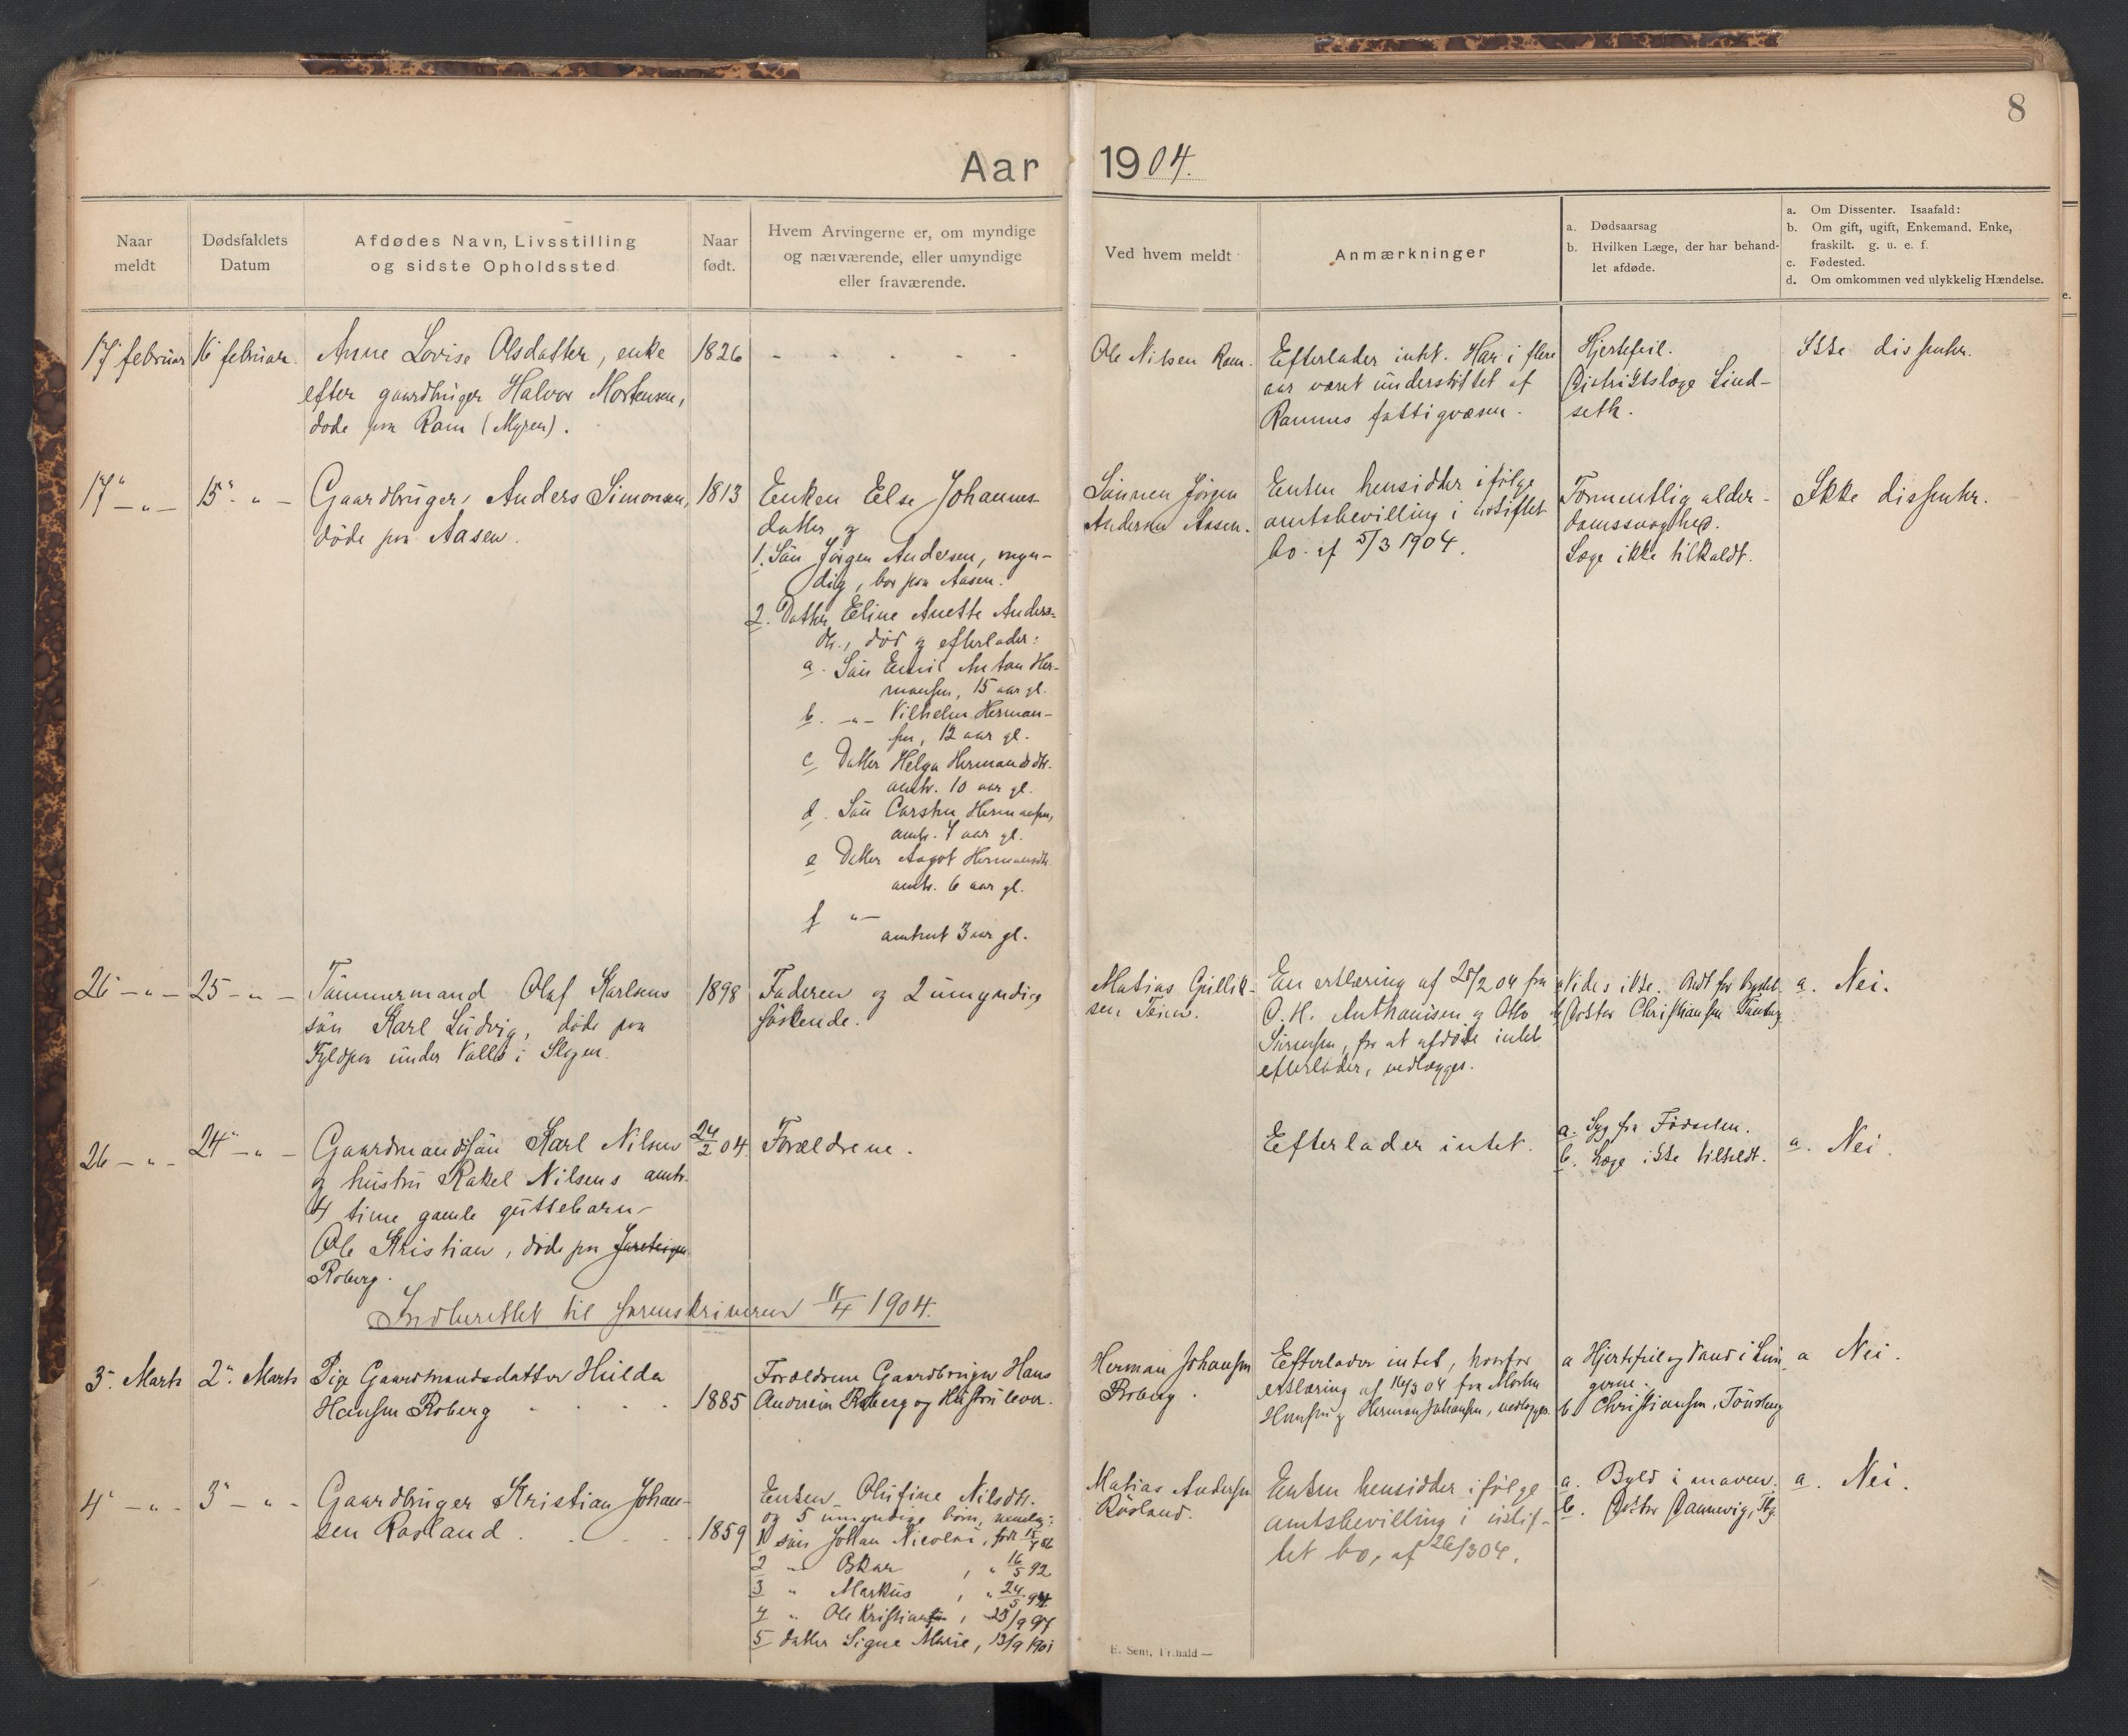 8
Aar 1904.
Naar meldt
Dødsfaldets Datum
Afdødes Navn, Livsstilling og sidste Opholdssted
Naar født.
Hvem Arvingerne er, om myndige og nærværende, eller umyndige eller fraværende.
Ved hvem meldt
Anmærkninger
a. Dødsaarsag
b. Hvilken Læge, der har behandlet afdøde.
a. Om Dissenter. Isaafald:
b. Om gift, ugift, Enkemand. Enke, fraskilt. g. u. e. f.
c. Fødested.
d. Om omkommen ved ulykkelig Hændelse.
17 februar
16 februar
Anne Lovise Olsdatter, enke
efter gaardbruger Halvor Mortensen,
døde paa Ram (Myren).
1826
Ole Nilsen Ram.
Efterlader intet. Har i flere
aar været understøttet af
Ramnes fattigvæsen.
Hjertefeil.
Distriktslæge Lind-
seth.
Ikke dissenter.
17 - " -
15 - " -
Gaardbruger Anders Simonsen,
døde paa Aasen.
1813
Enken Else Johannes-
datter og
1. Søn Jørgen Andersen, myn-
dig, bor paa Aasen.
2. Datter Eline Anette Anders-
dtr., død og efterlader:
a. Søn Emil Anton Her-
mansen, 15 aar gl.
b. - " - Vilhelm Herman-
sen, 12 aar gl.
c Datter Helga Hermansdtr.
amtr. 10 aar gl.
d. Søn Carsten Hermansen,
amtr. 7 aar gl.
e Datter Aagot Hermansdtr.
amtr. 6 aar gl.
f " -
amtrent 3 aar gl.
Sønnen Jørgen
Andersen Aasen.
Enken hensidder ifølge
amtsbevilling i uskiftet
bo af 5/3 1904.
Formentlig alder-
domssvaghed.
Læge ikke tilkaldt.
Ikke dissenter.
26 - " -
25 - " -
Tømmermand Olaf Karlsens
søn Karl Ludvig, døde paa
Fyldpaa under Vallø i Slagen.
1898
Faderen og 2 umyndige
søskende.
Matias Gullik-
sen
En erklæring af 25/2 04 fra
O. H. Anthonisen og Otto
Sørensen, for at afdøde intet
efterlader, vedlægges.
a Vides ikke.
b Doktor Christiansen Tønsberg
a. Nei.
26 - " -
24 - " -
Gaardmandssøn Karl Nilsen
og hustru Rakel Nilsens amtr.
4 time gamle guttebarn
Ole Kristian, døde paa
Roberg.
24/2 04
Forældrene.
Efterlader intet.
a. Syg fra Fødselen.
b. Læge ikke tilkaldt.
a. Nei.
Indberettet til sorenskriveren 11/4 1904.
3. Marts
2. Marts
Pige Gaardmandsdatter Hilda
Hansen Roberg
1885
Forældrene Gaardbruger Hans
Andreas Roberg og Hustru lever.
Herman Johansen
Roberg.
Efterlader intet, hvorfor
erklæring af 16/3 04 fra Morten
Hansen og Herman Johansen, vedlægges.
a Hjertefeil og Vand i Lun-
gerne.
b Christiansen, Tønsberg
a Nei.
4 - " -
3 - " -
Gaardbruger Kristian Johan-
sen Rosland.
1859
Enken Olufine Nilsdtr.
og 5 umyndige børn, nemlig:
1 søn Johan Nicolai, født
2 " Oskar, " 16/5 92
3 " Markus, " 24/5 94
4 " Ole Kristian, 23/9 97
5 datter Signe Marie, 13/9 1901
Matias Andersen
Rosland.
Enken hensidder ifølge
amtsbevilling i uskif-
tet bo, af 26/3 04.
a. Byld i maven.
b. Doktor Dannevig, Tbg.
a. Nei.
E. Sem, Fr.hald —